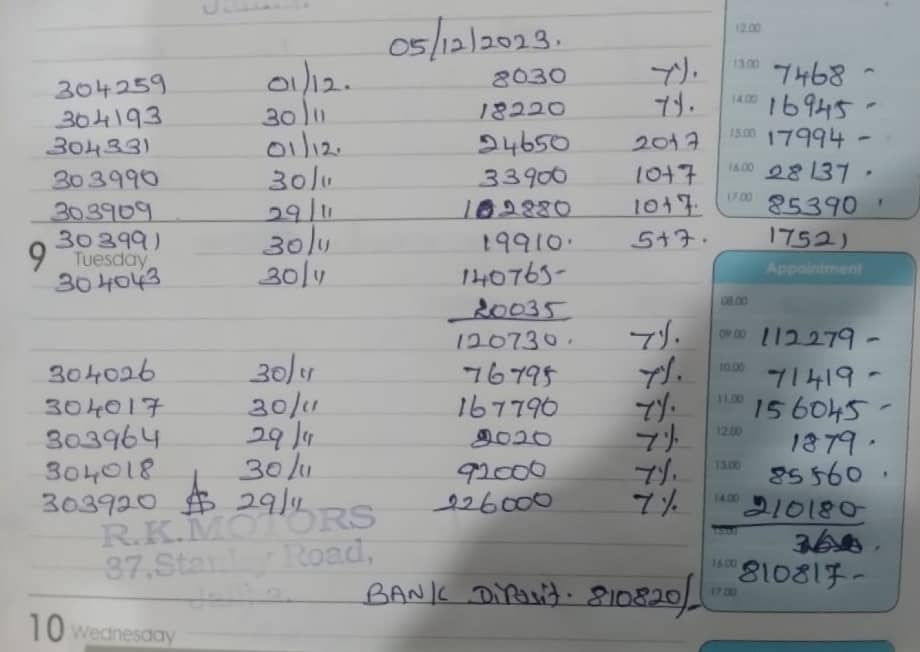 05/12/2023.
12.00
304259 01/12. 8030 7%. 13.00 7468 -
304193 30/11 18220 7%. 14.00 16945 -
304331 01/12. 24650 20+7 15.00 17994 -
303990 30/11 33900 10+7 16.00 28137 .
303909 29/11 102880 10+7. 17.00 85390 .
303991 30/11 19910. 5+7. 17521
9 Tuesday
Appointment
304043 30/11 140765-
08.00
20035
120730. 7%. 09.00 112279 -
304026 30/11 76795 7%. 10.00 71419 -
304017 30/11 167790 7%. 11.00 156045 -
303964 29/11 2020 7%. 12.00 1879 .
304018 30/11 92000 7%. 13.00 85560 .
303920 29/11 226000 7% 14.00 210180
R.K.MOTORS
15.00
37, Road,
16.00 810817-
BANK Diposit. 810820/-
17.00
10 Wednesday